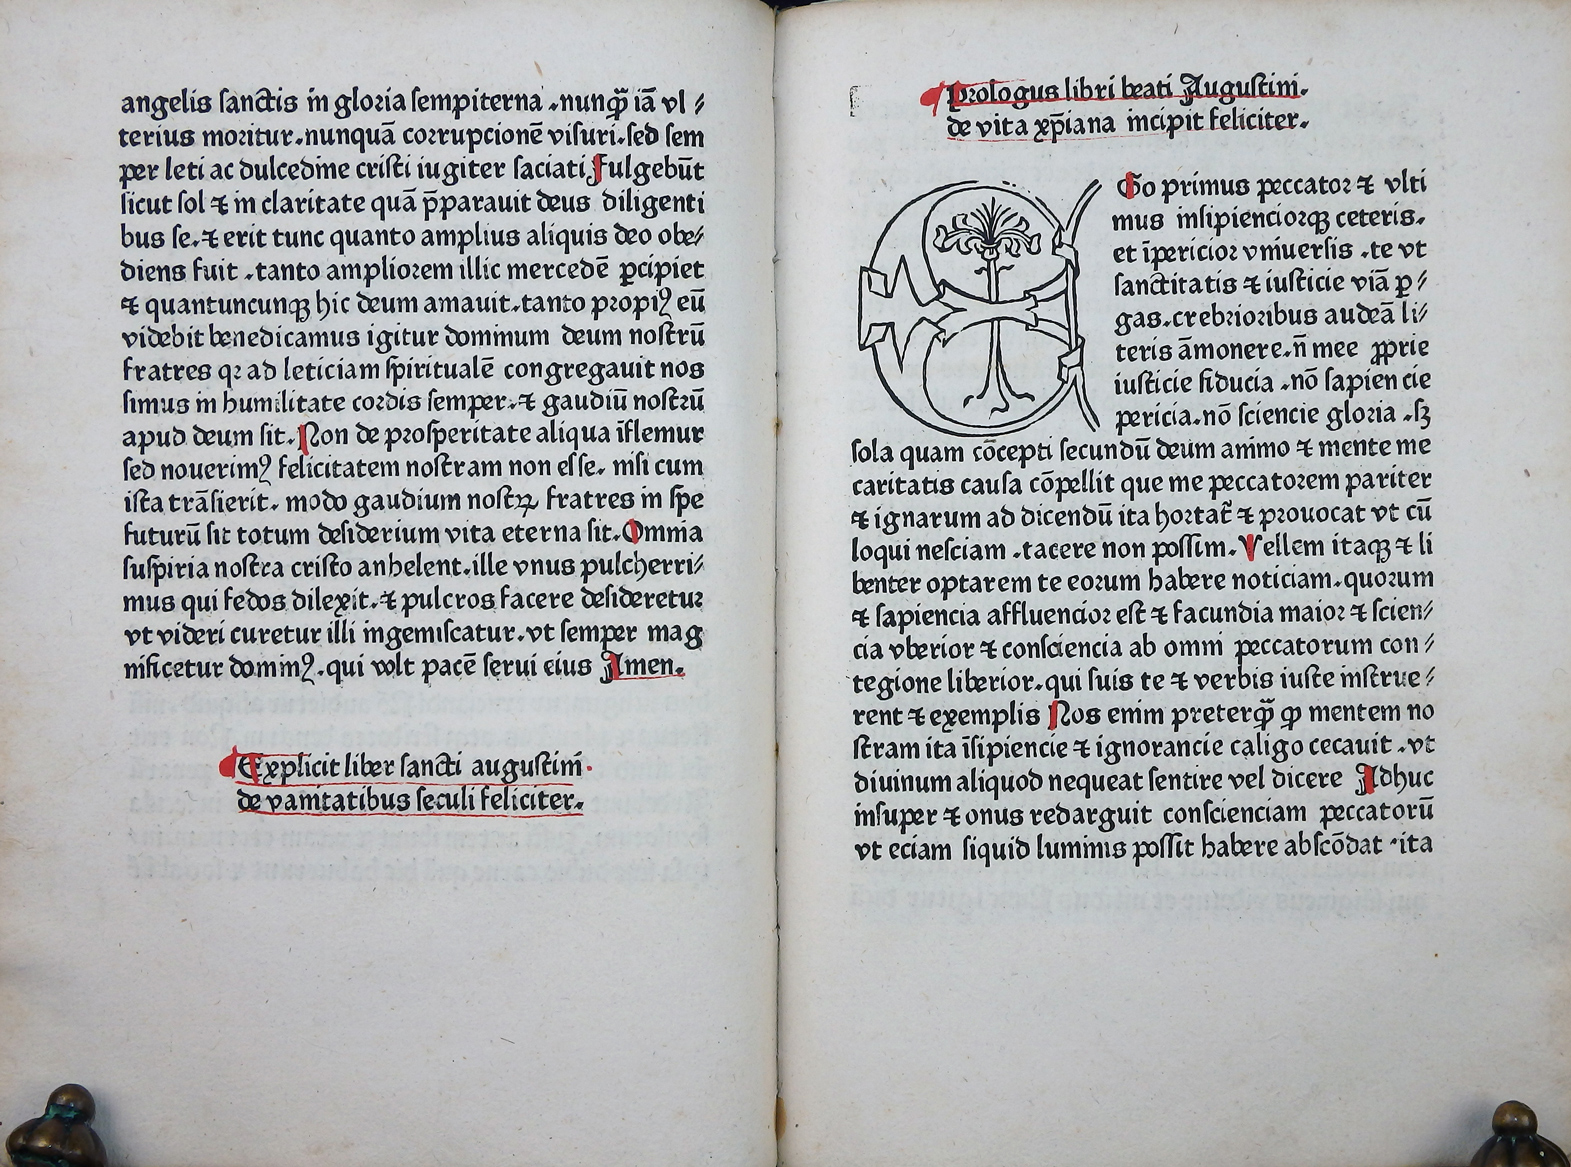 angelis sanctis in gloria sempiterna .nunq̄ꝫ iā vl⸗
terius moritur.nunquā corrupcionē visuri.sed sem
per leti ac dulcedine cristi iugiter saciati Fulgebūt
sicut sol ⁊ in claritate quā p̄parauit deus diligenti
bus se.⁊ erit tunc quanto amplius aliquis deo obe⸗
diens fuit .tanto ampliorem illic mercedē ꝑcipiet
⁊ quantuncunqꝫ hic deum amauit.tanto propiꝰ eū
videbit benedicamus igitur dominum deum nostrū
fratres qꝛ ad leticiam spiritualē congregauit nos
simus in humilitate cordis semper.⁊ gaudiū nostrū
apud deum sit.Non de prosperitate aliqua īflemur
sed nouerimꝰ felicitatem nostram non esse. nisi cum
ista trāsierit. modo gaudium nostꝝ fratres in spe
futurū sit totum desiderium vita eterna sit.Omnia
suspiria nostra cristo anhelent.ille vnus pulcherri⸗
mus qui fedos dilexit.⁊ pulcros facere desideretur
vt videri curetur illi ingemiscatur.vt semper mag
nificetur dominꝰ.qui volt pacē serui eius Amen.
Explicit liber sancti augustini.
de vanitatibus seculi feliciter.
Prologus libri beati Augustini.
de vita xp̄iana incipit feliciter.
EGo primus peccator ⁊ vlti
mus insipienciorqꝫ ceteris.
et īpericior vniuersis .te vt
sanctitatis ⁊ iusticie viā ꝑ⸗
gas.crebrioribus audeā li⸗
teris āmonere.n̄ mee ꝓprie
iusticie fiducia .nō sapiencie
pericia.nō sciencie gloria .sꝫ
sola quam cōcepti secundū deum animo ⁊ mente me
caritatis causa cōpellit que me peccatorem pariter
⁊ ignarum ad dicendū ita hortat̄ ⁊ prouocat vt cū
loqui nesciam .tacere non possim.Vellem itaqꝫ ⁊ li
benter optarem te eorum habere noticiam.quorum
⁊ sapiencia affluencior est ⁊ facundia maior ⁊ scien⸗
cia vberior ⁊ consciencia ab omni peccatorum con⸗
tegione liberior.qui suis te ⁊ verbis iuste instrue⸗
rent ⁊ exemplis Nos enim preterq̄ꝫ ꝙ mentem no
stram ita īsipiencie ⁊ ignorancie caligo cecauit .vt
diuinum aliquod nequeat sentire vel dicere Adhuc
insuper ⁊ onus redarguit conscienciam peccatorū
vt eciam siquid luminis possit habere abscōdat .ita